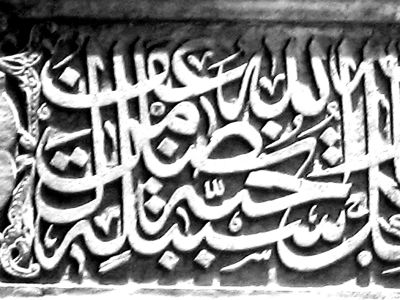 كل سنبلة مائة حبة والله يضاعف لمن